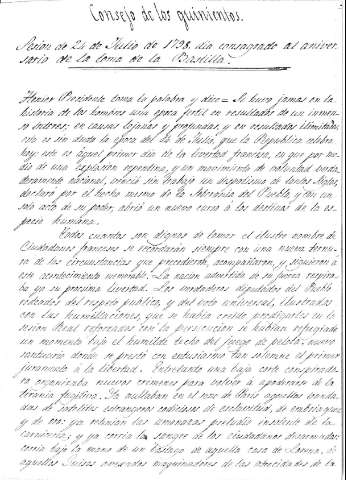 Consejo de los quinientos.
Sesion de 24 de Julio de 1798, dia consagrado al aniver-
sario de la toma de la Bastilla.
Presidente toma la palabra y dice = Si hubo jamas en la
historia de los hombres una época fertil en resultados de un inmen-
so interes; en causas lejanas y profundas, y en resultados ilimitados,
esta es sin duda la época del 14 de Julio, que la Republica celebra
hoy: este es aquel primer dia de la libertad francesa, en que por me-
dio de una esplosion repentina, y un movimiento de voluntad verda-
deramente nacional, un despotismo de siglos,
declaró por el hecho mismo de la Soberania del Pueblo, y con un
solo acto de su poder, abrió un nuevo curso á los destinos de la es-
pecie humana.
Todos cuantos son dignos de tomar el ilustre nombre de
Ciudadanos franceses se recordarán siempre con una nueva ternu-
ra de las circunstancias que precedieron, acompañaron, y siguieron á
este acontecimiento memorable. La nacion advertida de su fuerza respira-
ba ya su procsima libertad. Los verdaderos diputados del Pueblo
rodeados del respeto publico, y del voto universal, ilustrados
con las humillaciones, que se habia creido prodigarles en la
sesion Real reforzados con la persecucion se habian refugiado
un momento bajo el humilde techo del juego de pelota: nuevo
santuario donde se prestó con entusiasmo tan solemne el primer
juramento á la libertad. Entretanto una baja corte conspirado-
ra organizaba nuevos crimenes para volver á apoderarse de la
tirania fugitiva. Se aullaban en el seno de Paris aquellas banda-
das de satelites estrangeros codiciosos de esclavitud, de embriaguez
y de oro: ya retenian las amenazas preludio insolente de la
carniceria; y ya corria la sangre de los ciudadanos desarmados:
corria bajo la mano de un de aquella casa de Lorena, de
aquellos Guisas maquinadores de las atrocidades de la